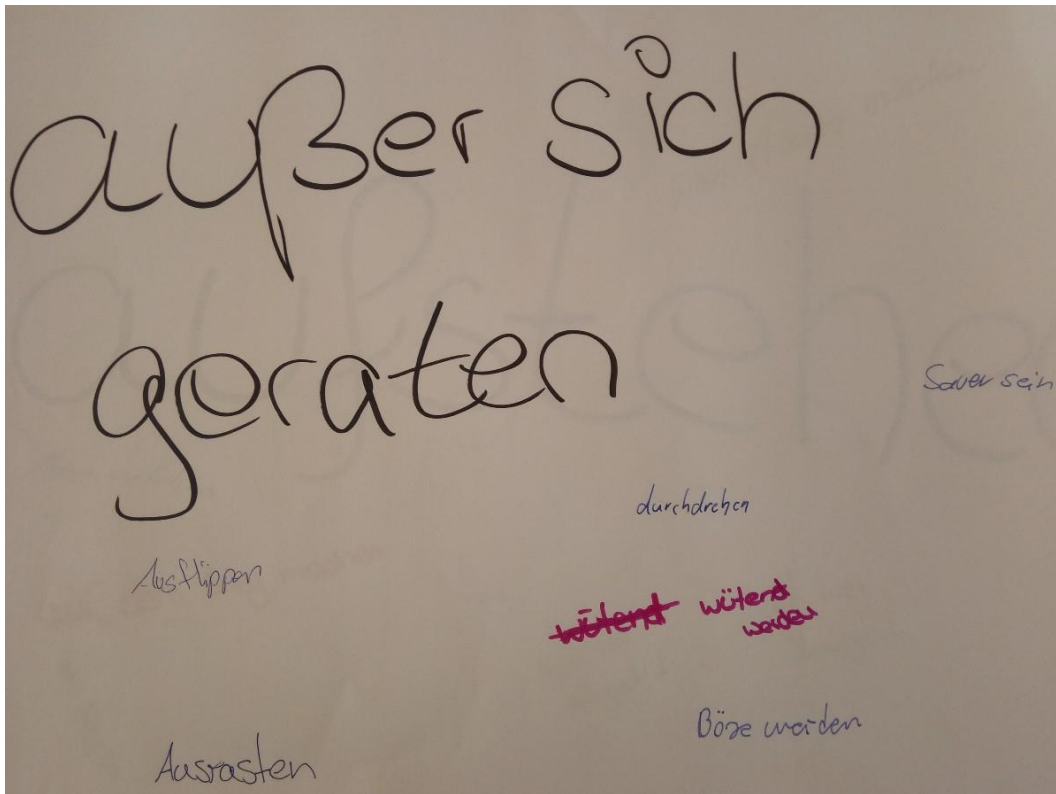 außer sich
geraten
Sauer sein
durchdrehen
Ausflippen
wütend wütend
werden
Böse werden
Ausrasten